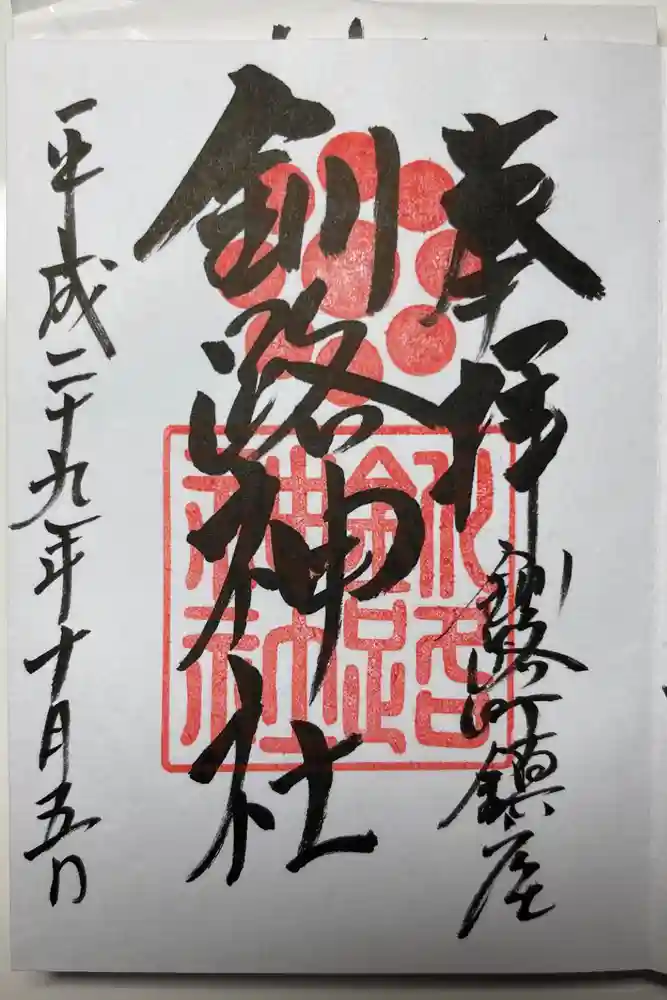 奉拝
釧路町鎮座
釧路神社
釧路神社
平成二十九年十月五日